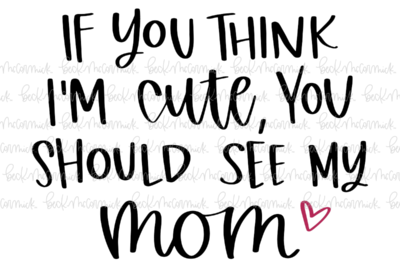 IF YOU THINK
I'M cute, YOU
SHOULD SEE MY
mom